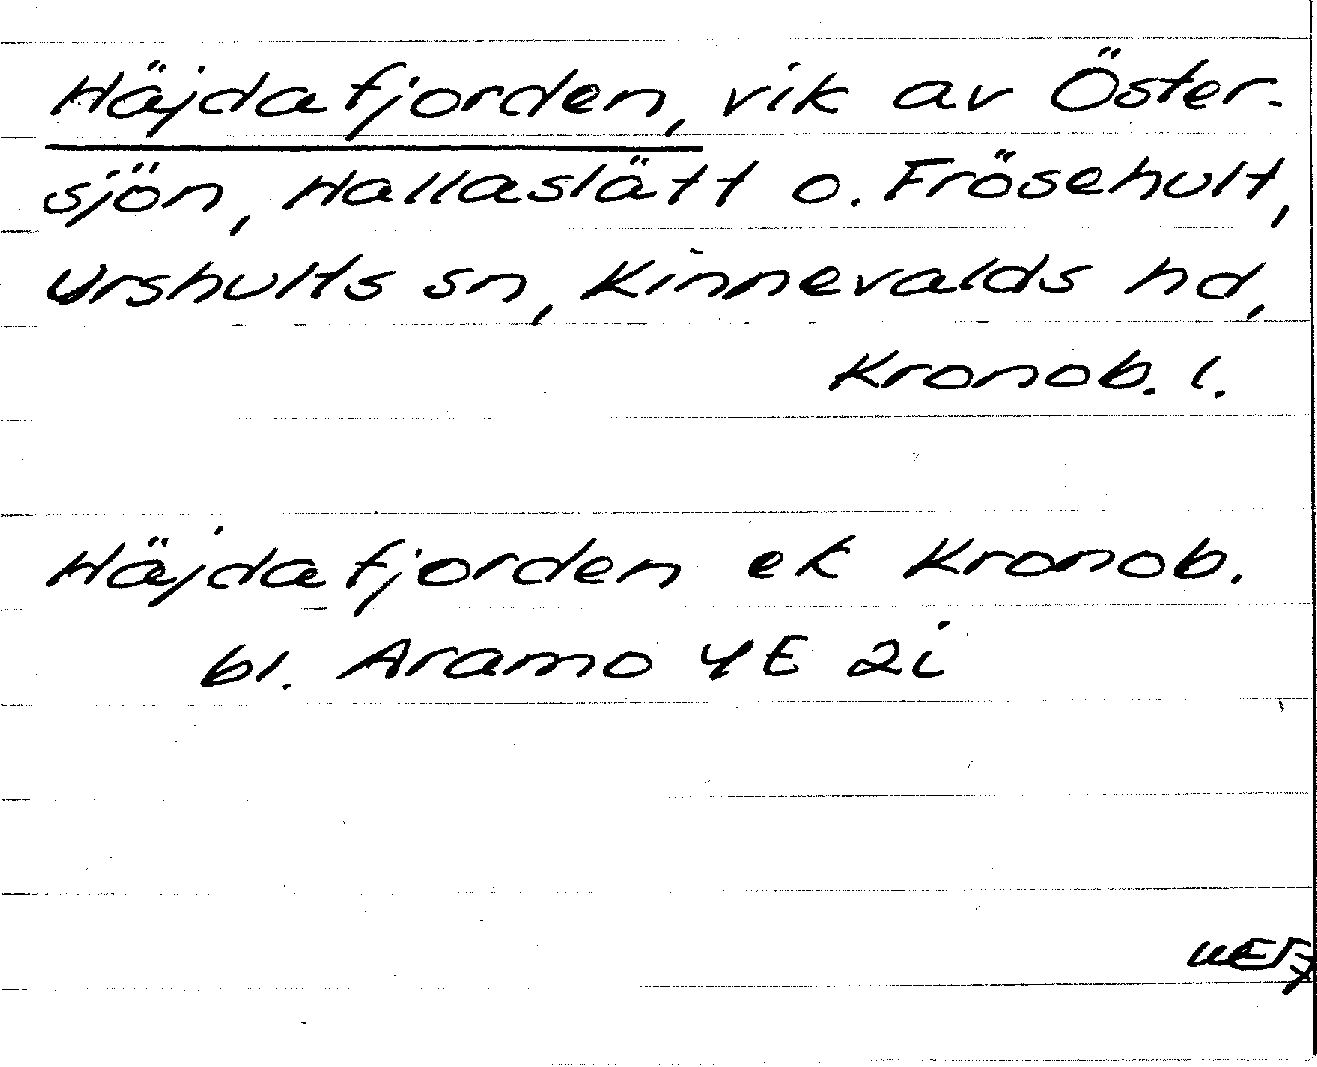 Häjdafjorden, vik av Öster-
sjön, Hallaslätt o. Frösehult,
Urshults sn, Kinnevalds hd,
Kronob. l.
Häjdafjorden ek Kronob.
bl. Aramo 4E 2i